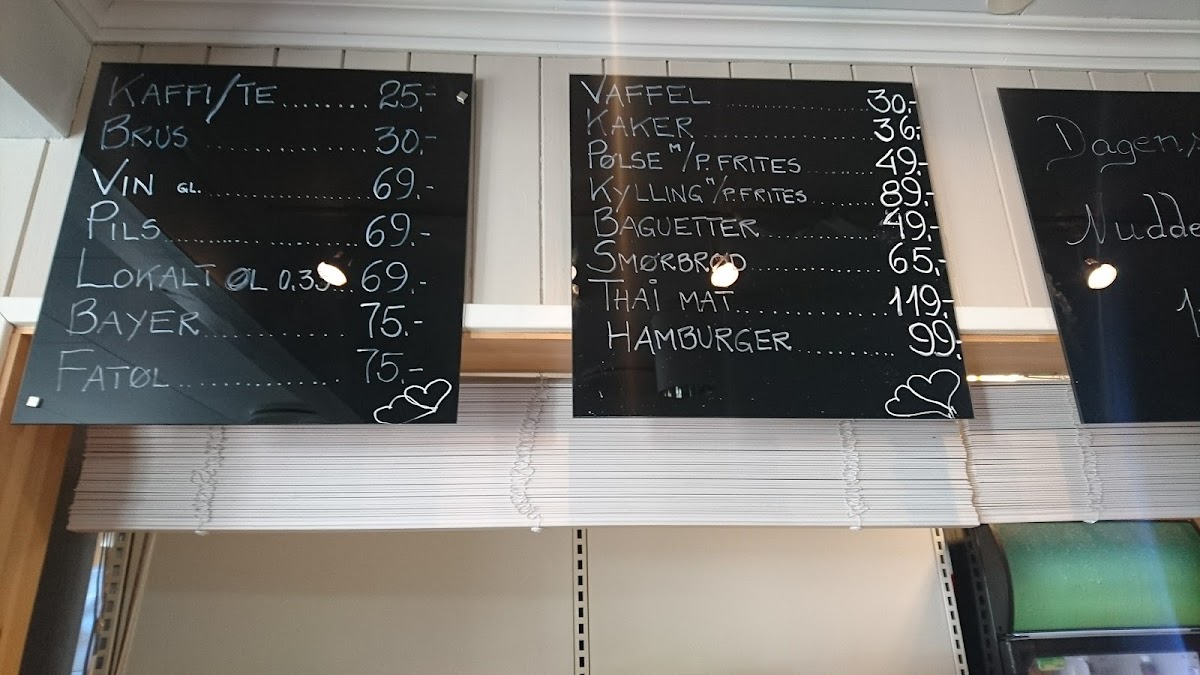 KAFFI/TE........ 25,-
BRUS ................ 30,-
VIN GL.................. 69,-
PILS..................... 69,-
LOKALT ØL 0.33... 69,-
BAYER................ 75.-
FATØL................. 75,-
VAFFEL .................. 30,-
KAKER .................. 36,-
PØLSE M/P.FRITES 49,-
KYLLING M/P.FRITES..... 89,-
BAGUETTER.............. 49,-
SMØRBRØD.............. 65,-
THAI MAT................ 119,-
HAMBURGER........... 99,-
Dagens
Nudde